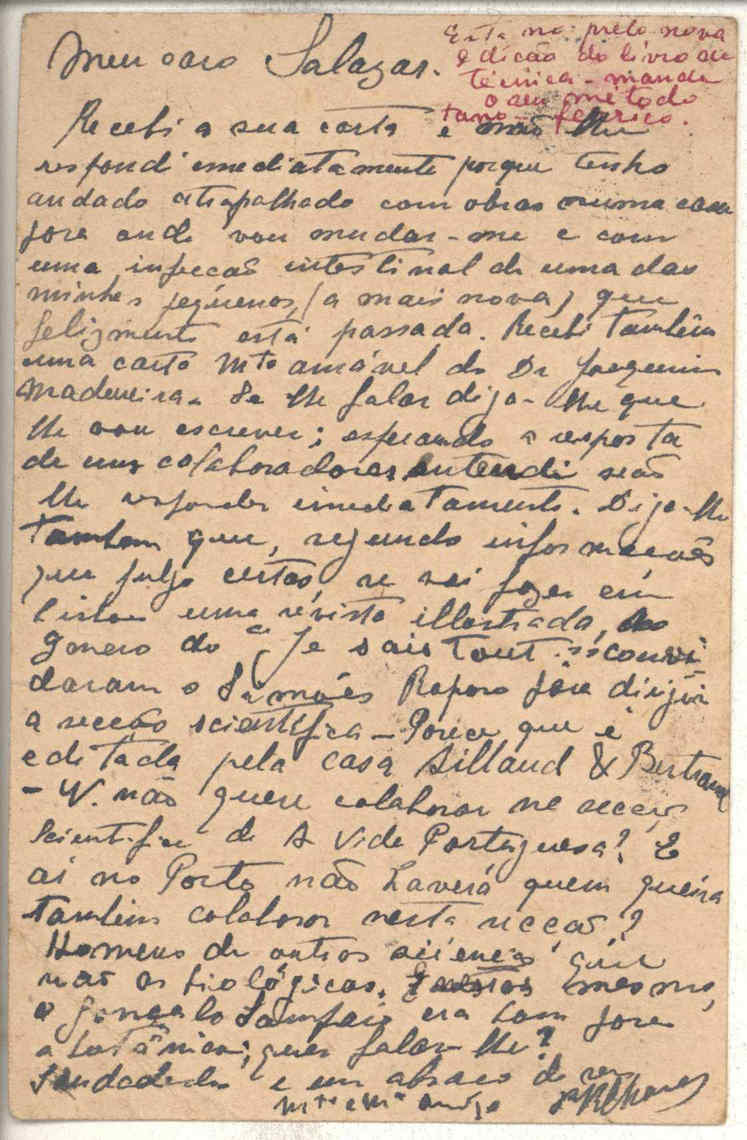 Meu caro Salazar.
Está no prelo nova
edição do livro de
técnica - mande
o seu metodo
tano-ferrico.
Recebi a sua carta e não lhe
respondi imediatamente porque tenho
andado atrapalhado com obras numa casa
para onde vou mudar-me e com
uma infecção intestinal de uma das
minhas pequenas, (a mais nova) que
felizmente está passada. Recebi tambem
uma carta mto amável do Dr Joaquim
Madureira. Se lhe falar diga-lhe que
lhe vou escrever; esperando a resposta
de uns colaboradores entendi não
lhe responder imediatamente. Diga-lhe
tambem que, segundo informações
que julgo certas, se vai fazer em
Lisboa uma revista illustrada, no
genero do "Je sais tout". convi
daram o Simões Raposo para dirigir
a secção scientifica - Parece que é
editada pela casa Aillaud & Bertrand
- V. não quere colaborar na secção
scientifica de A Vida Portuguesa? E
aí no Porto não haverá quem queira
tambem colaborar nesta secção?
Homens de outras sciencias que
não as biológicas. mesmo,
o Gonçalo Sampaio era bom para
a botânica; quer falar-lhe?
Saudades e um abraço do seu
mto e mto amigo